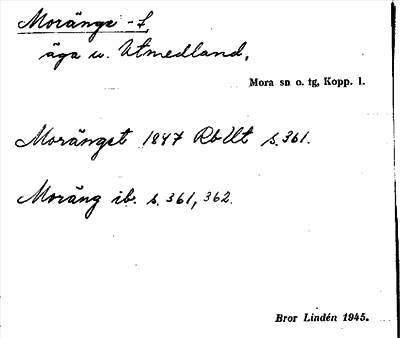 Morängs -t,
äga u. Utmedland,
Mora sn o. tg, Kopp. l.
Morängst 1847 Rb Ut s. 361.
Moräng ib. s. 361, 362.
Bror Lindén 1945.